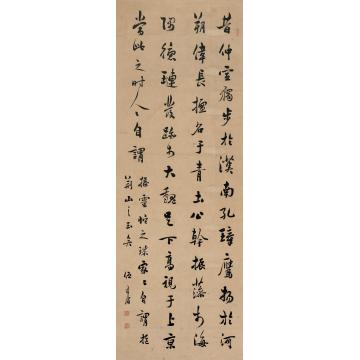 昔仲宣獨步於漢南孔璋鷹揚於河
朔偉長擅名于青土公幹振藻於海
隅德璉發跡於大魏足下高視于上京
當此之時人々自謂
握靈蛇之珠家々自謂抱
荊山之玉矣